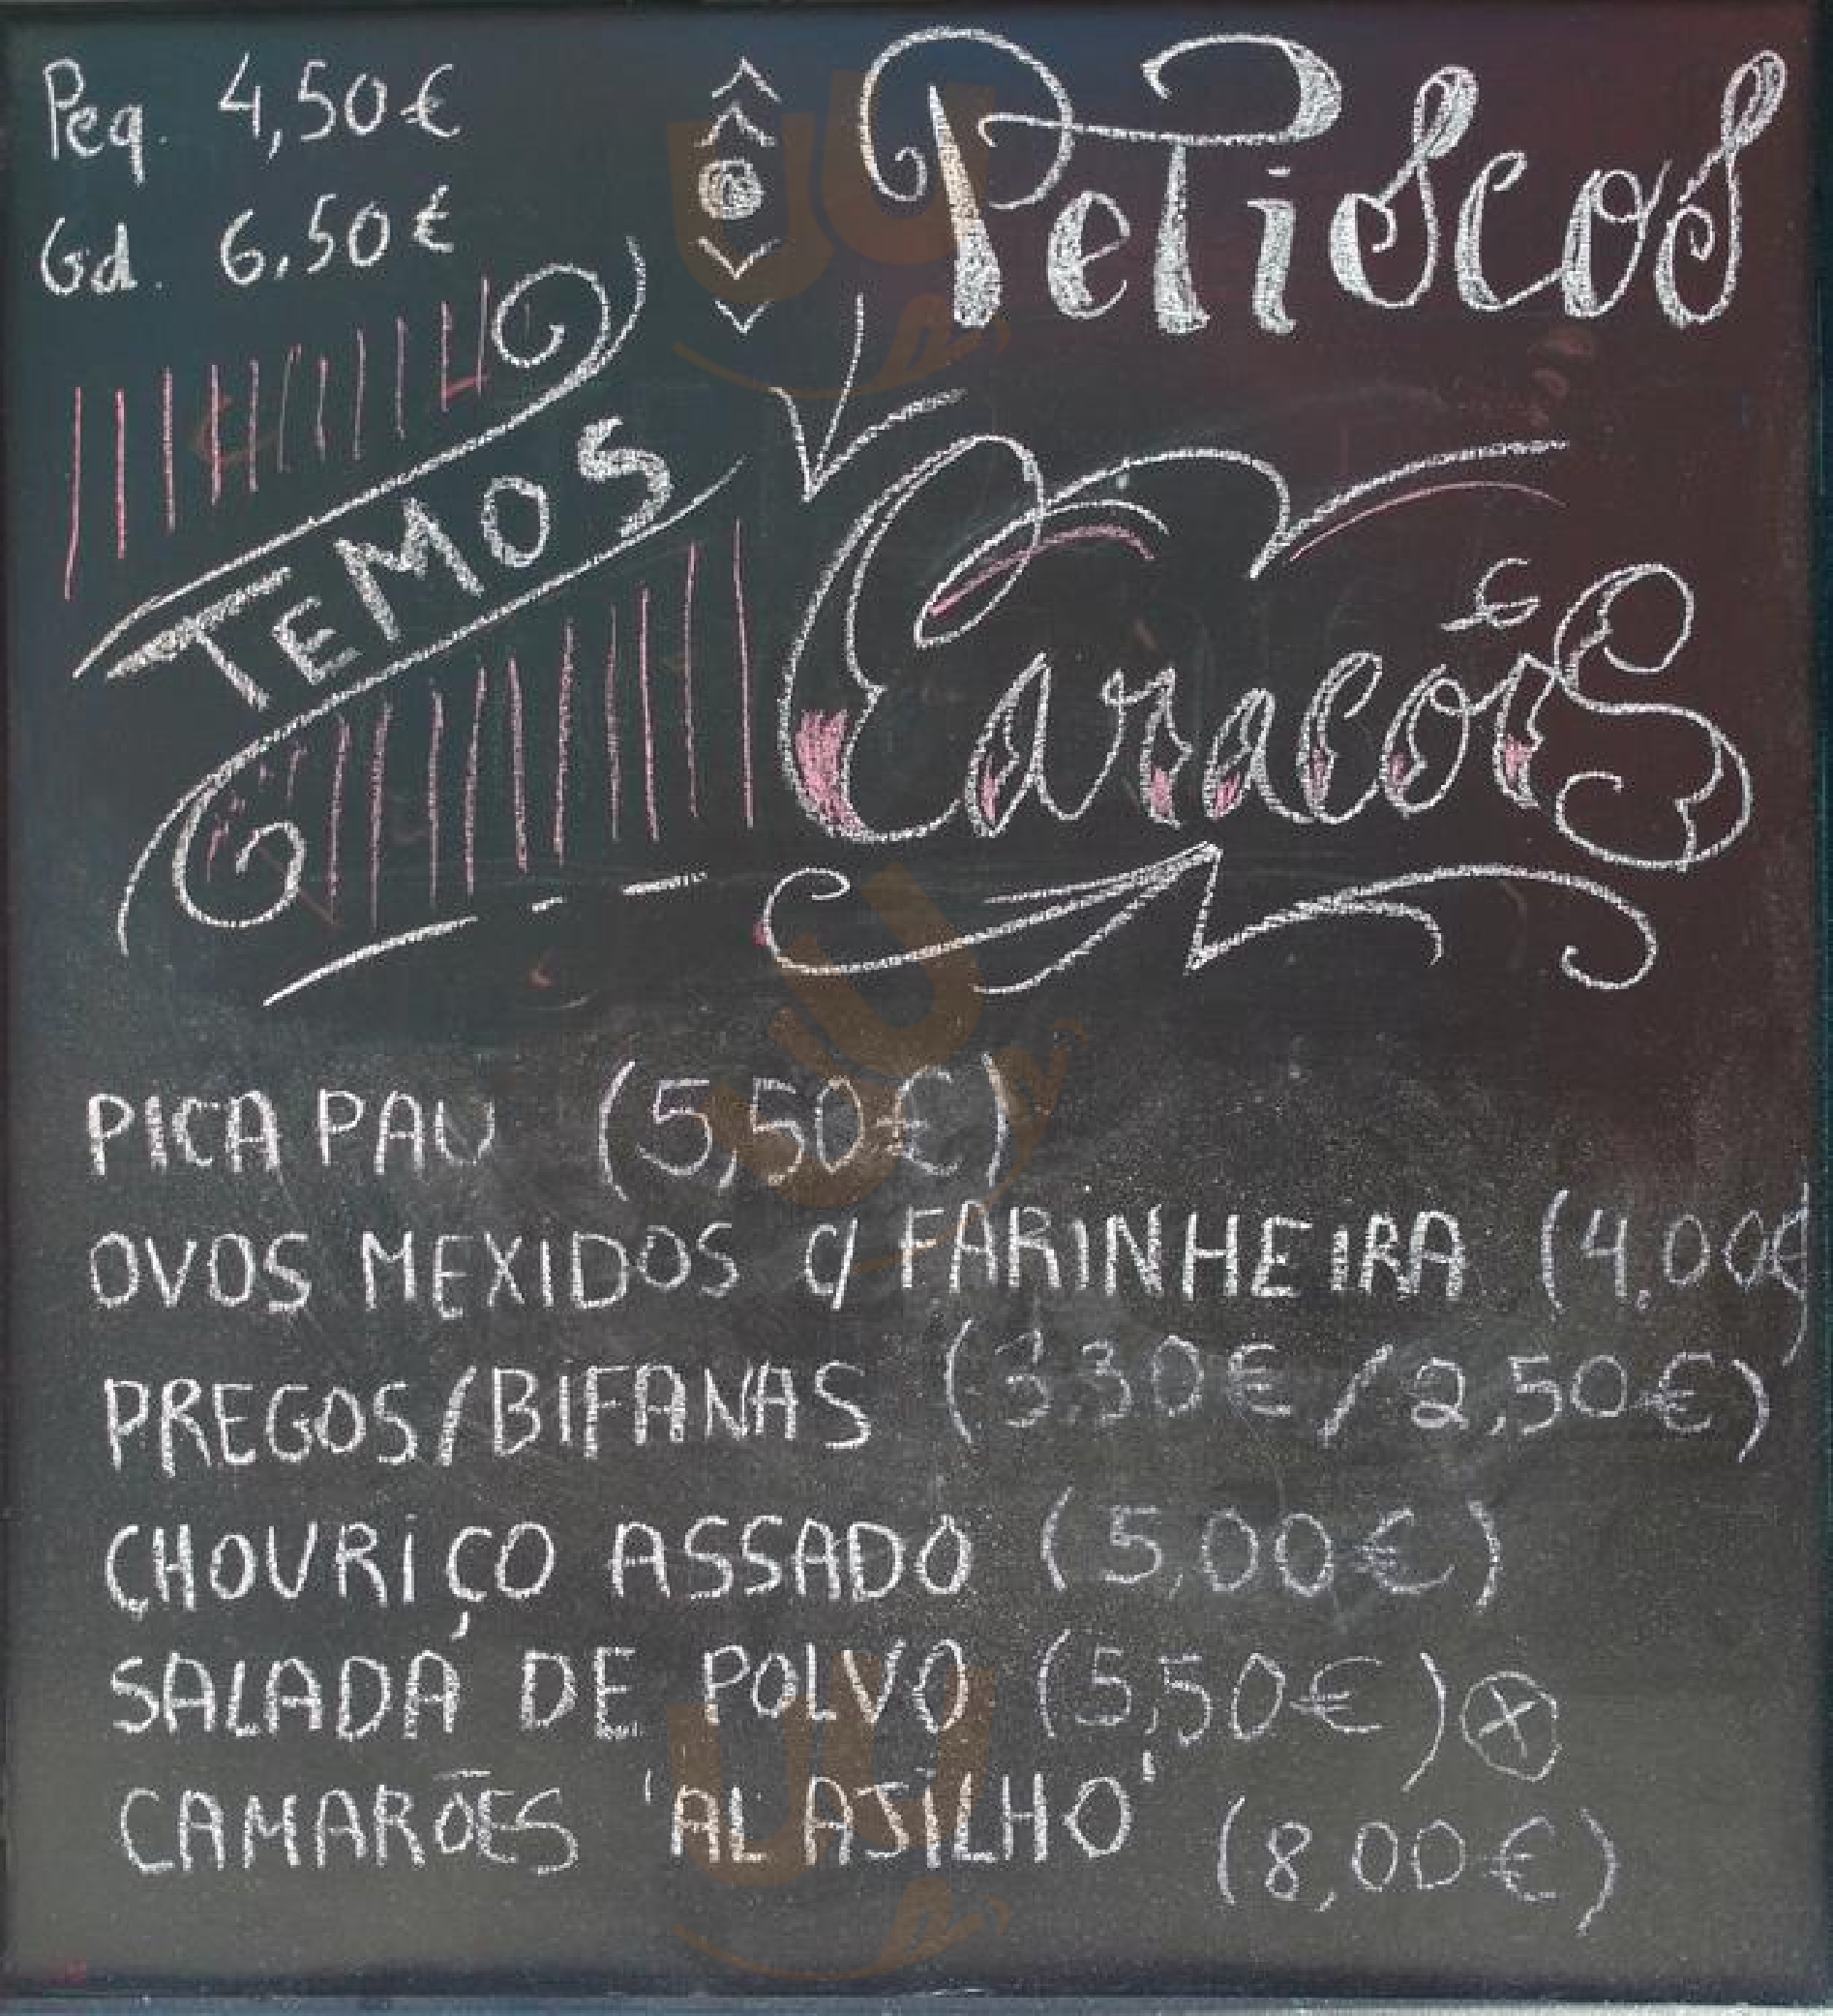 Peq. 4,50€
Gd. 6,50€
Petiscos
TEMOS
Caracóis
PICA PAU (5,50€)
OVOS MEXIDOS C/ FARINHEIRA (4,00€)
PREGOS/BIFANAS (3,30€/2,50€)
CHOURIÇO ASSADO (5,00€)
SALADA DE POLVO (5,50€)
CAMARÕES 'AL AJILHO' (8,00€)